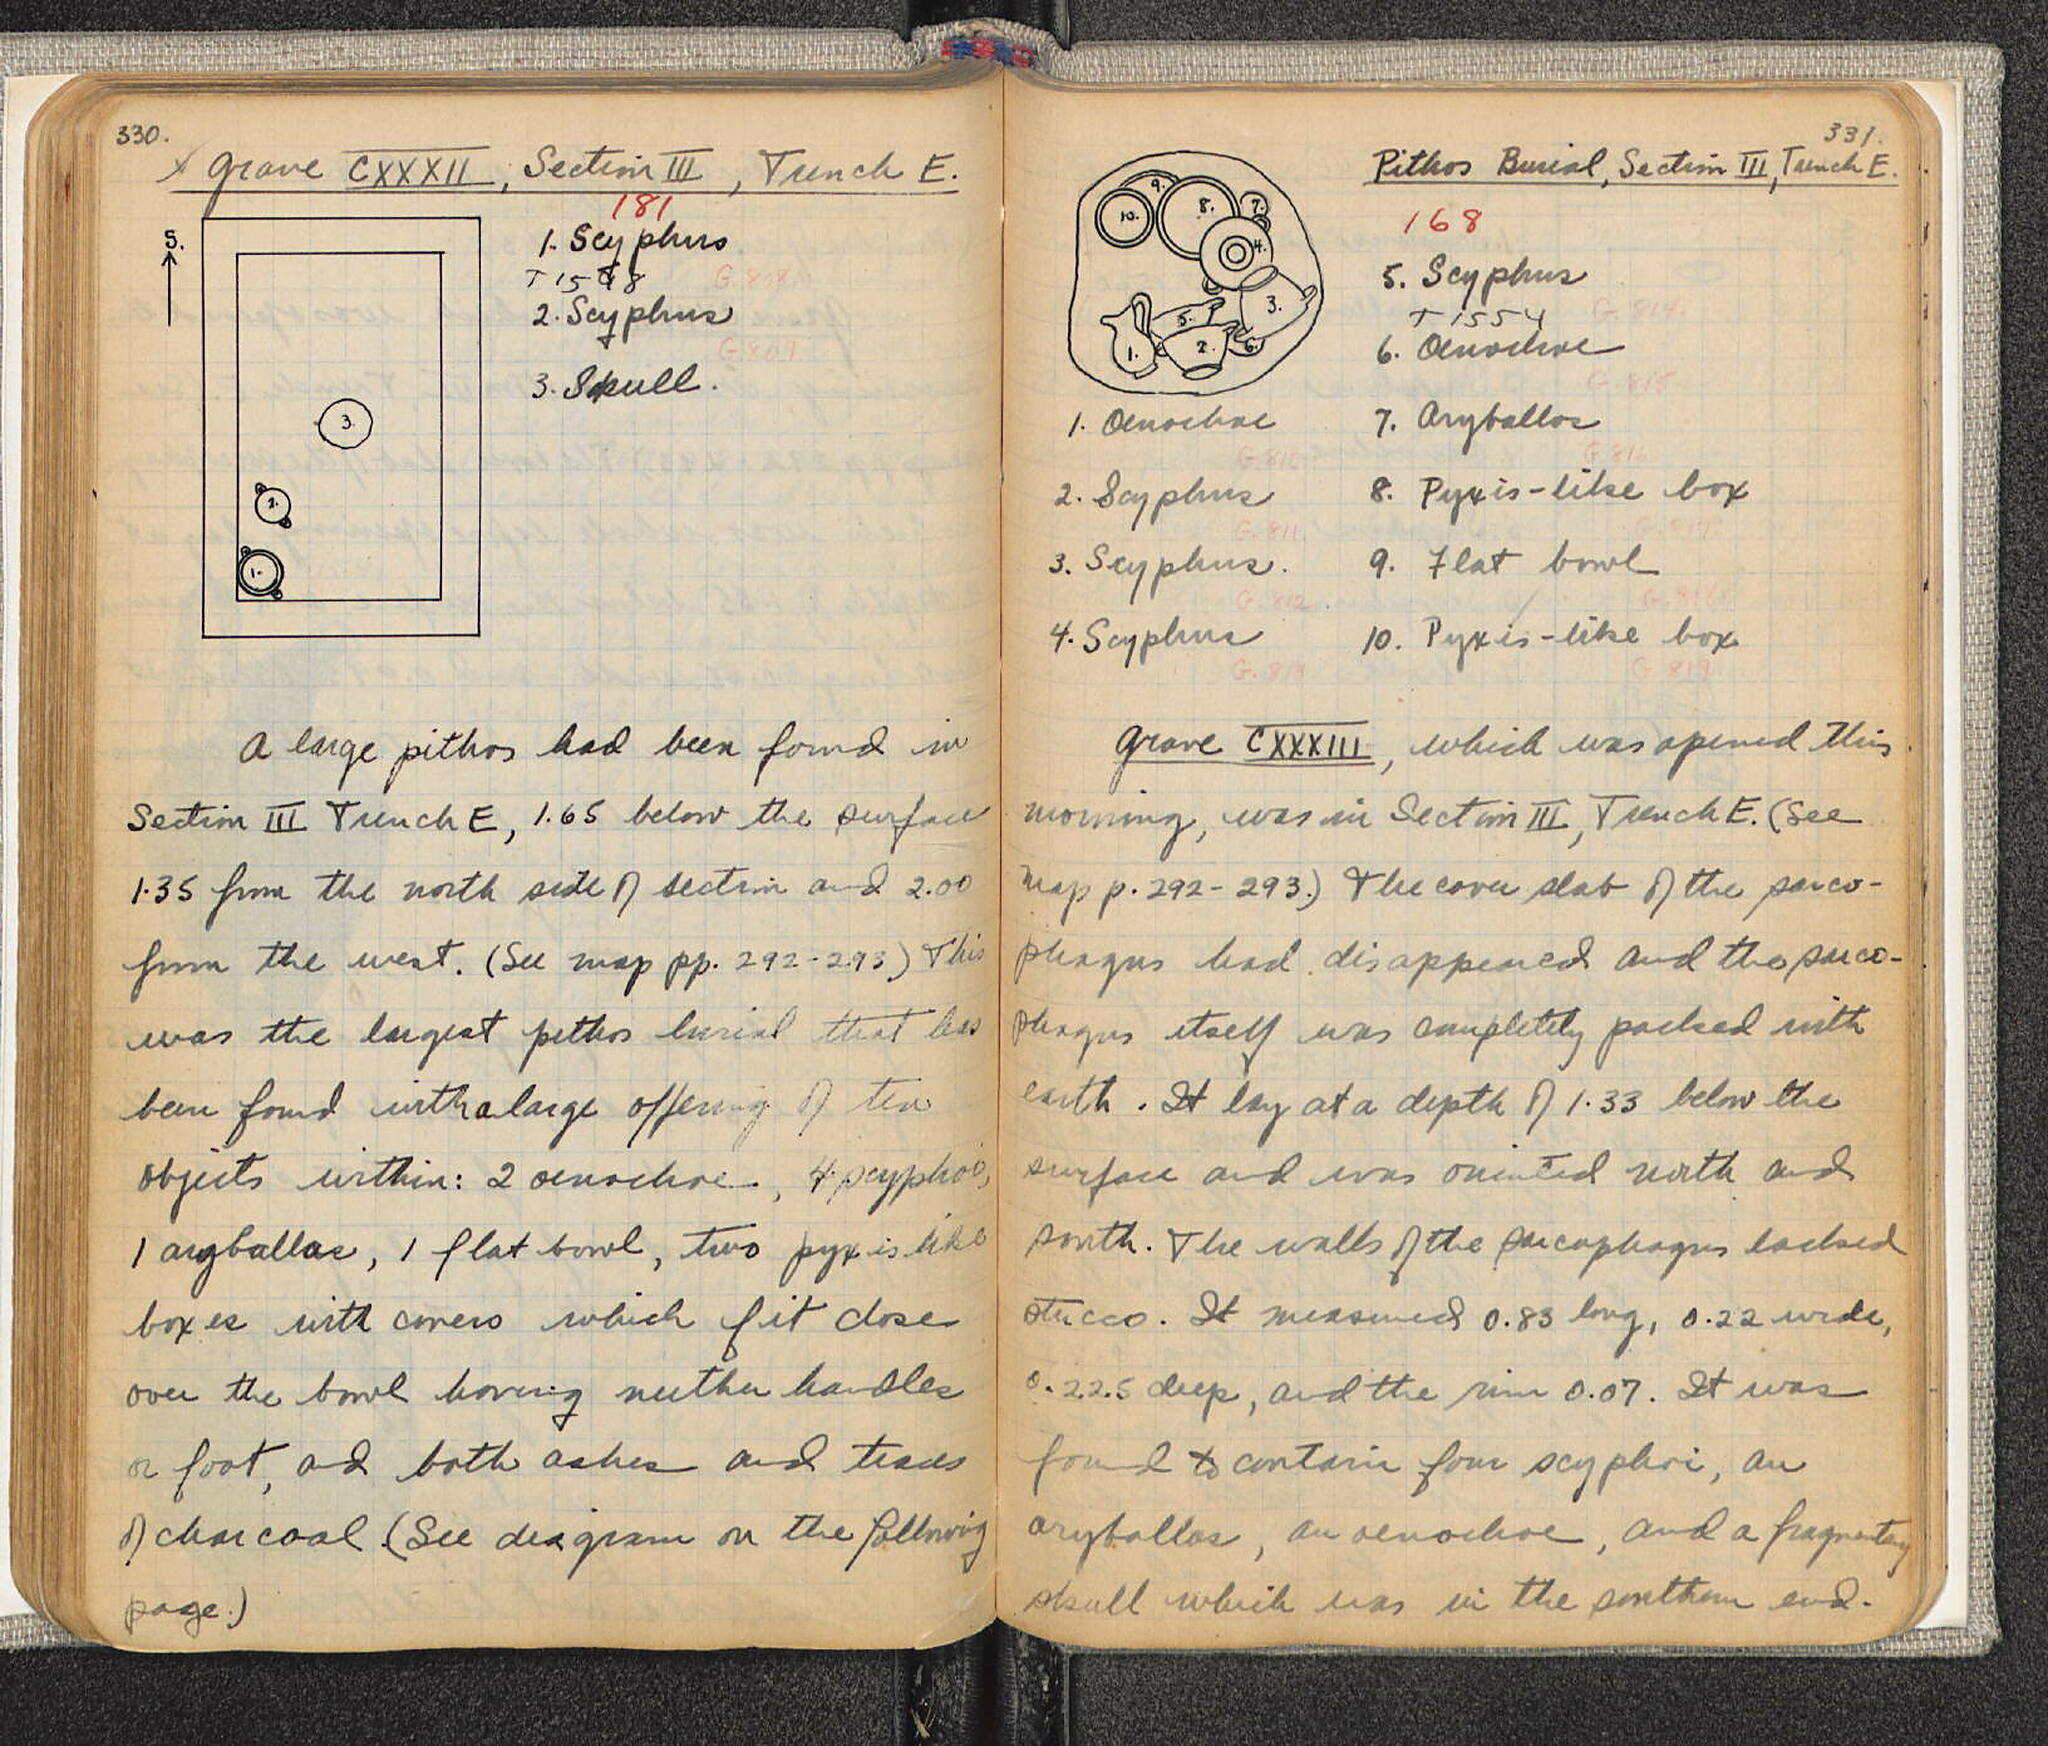 330.
x Grave CXXXII, Section III, Trench E.
181
S.
1. Scyphus
T 1568
G. 808
2. Scyphus
G. 809
3. Skull.
3.
2.
1.
A large pithos had been found in
Section III Trench E, 1.65 below the surface
1.35 from the north side of section and 2.00
from the west. (See map pp. 292-293) This
was the largest pithos burial that has
been found with a large offering of ten
objects within: 2 oenochoe, 4 scyphoi,
1 aryballos, 1 flat bowl, two pyxis like
boxes with covers which fit close
over the bowl having neither handles
or foot, and both ashes and traces
of charcoal (See diagram on the following
page.)
331.
Pithos Burial, Section III, Trench E.
168
9.
10.
8.
7.
4.
3.
5.
1.
2.
6.
1. Oenochoe
G. 810
2. Scyphus
G. 811
3. Scyphus.
G. 812
4. Scyphus
G. 813
5. Scyphus
T 1554
G. 814
6. Oenochoe
G. 815
7. Aryballos
G. 816
8. Pyxis-like box
G. 817
9. Flat bowl
G. 818
10. Pyxis-like box
G. 819
Grave CXXXIII, which was opened this
morning, was in Section III, Trench E. (See
map p. 292-293.) The cover slab of the sarco-
phagus had disappeared and the sarco-
phagus itself was completely packed with
earth. It lay at a depth of 1.33 below the
surface and was oriented north and
south. The walls of the sarcophagus lacked
stucco. It measured 0.83 long, 0.22 wide,
0.225 deep, and the rim 0.07. It was
found to contain four scyphoi, an
aryballos, an oenochoe, and a fragmentary
skull which was in the southern end.